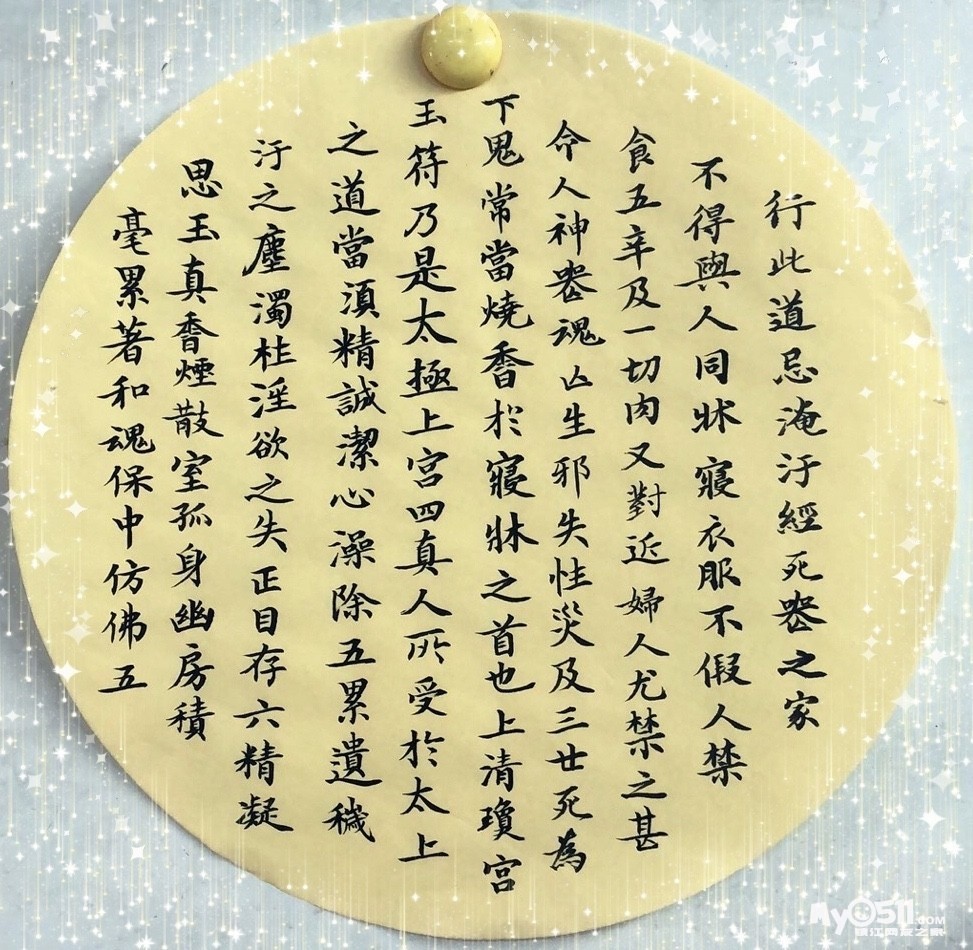 行此道忌淹汙經死喪之家
不得與人同牀寢衣服不假人禁
食五辛及一切肉又對近婦人尤禁之甚
令人神喪魂亡生邪失性災及三世死為
下鬼常當燒香於寢牀之首也上清瓊宮
玉符乃是太極上宮四真人所受於太上
之道當須精誠潔心澡除五累遺穢
汙之塵濁杜淫欲之失正目存六精凝
思玉真香煙散室孤身幽房積
毫累著和魂保中仿佛五
My0511.COM
鎮江网友之家